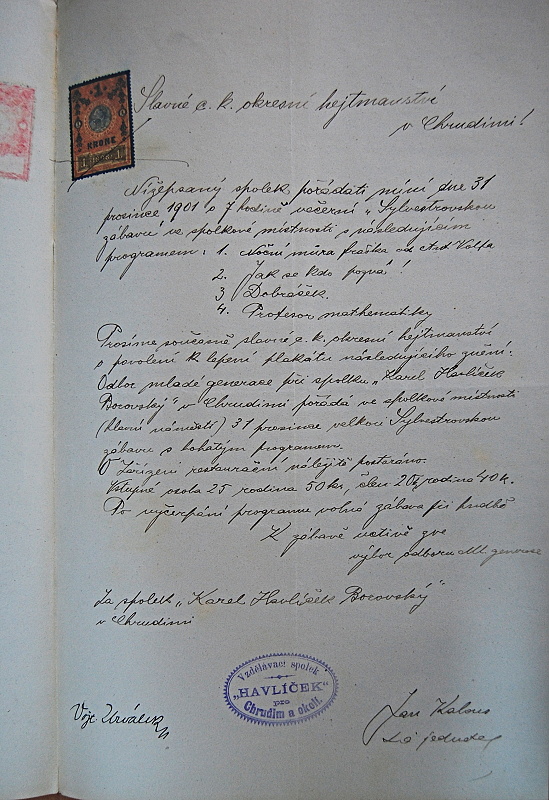 KRONE
Slavné c. k. okresní hejtmanství
v Chrudimi!
Nížepsaný spolek pořádati míní dne 31
prosince 1901 o 7 hodině večerní „Sylvestrovskou
zábavu" ve spolkové místnosti s následujícím
programem: 1. Noční můra fraška od
2. Jak se kdo pozná!
3 Dobráček.
4. Profesor mathematiky
Prosíme současně slavné c. k. okresní hejtmanství
o povolení k lepení plakátů následujícího znění:
Odbor mladé generace při spolku „Karel Havlíček
Borovský" v Chrudimi pořádá ve spolkové místnosti
(hlavní náměstí) 31 prosince velkou Sylvestrovskou
zábavu s bohatým programem.
O zařízení restaurační náležitě postaráno.
Vstupné osoba 25 rodina 50 hal, člen 20 rodina 40 h.
Po vyčerpání programu volná zábava při hudbě
K zábavě uctivě zve
výbor odboru Ml. generace
Za spolek „Karel Havlíček Borovský"
v Chrudimi
Vzdělávací spolek
„HAVLÍČEK"
pro
Chrudim a okolí.
Jan
t. č. jednatel